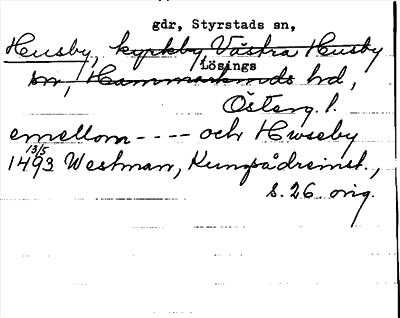 gdr, Styrstads sn,
Husby, kyrkby, Västra Husby
Lösings
sn, Hammarkinds hd,
Österg. l.
emellom ---- och Hwseby
13/5
1493 Westman, Kungsådreinst.,
s. 26 orig.